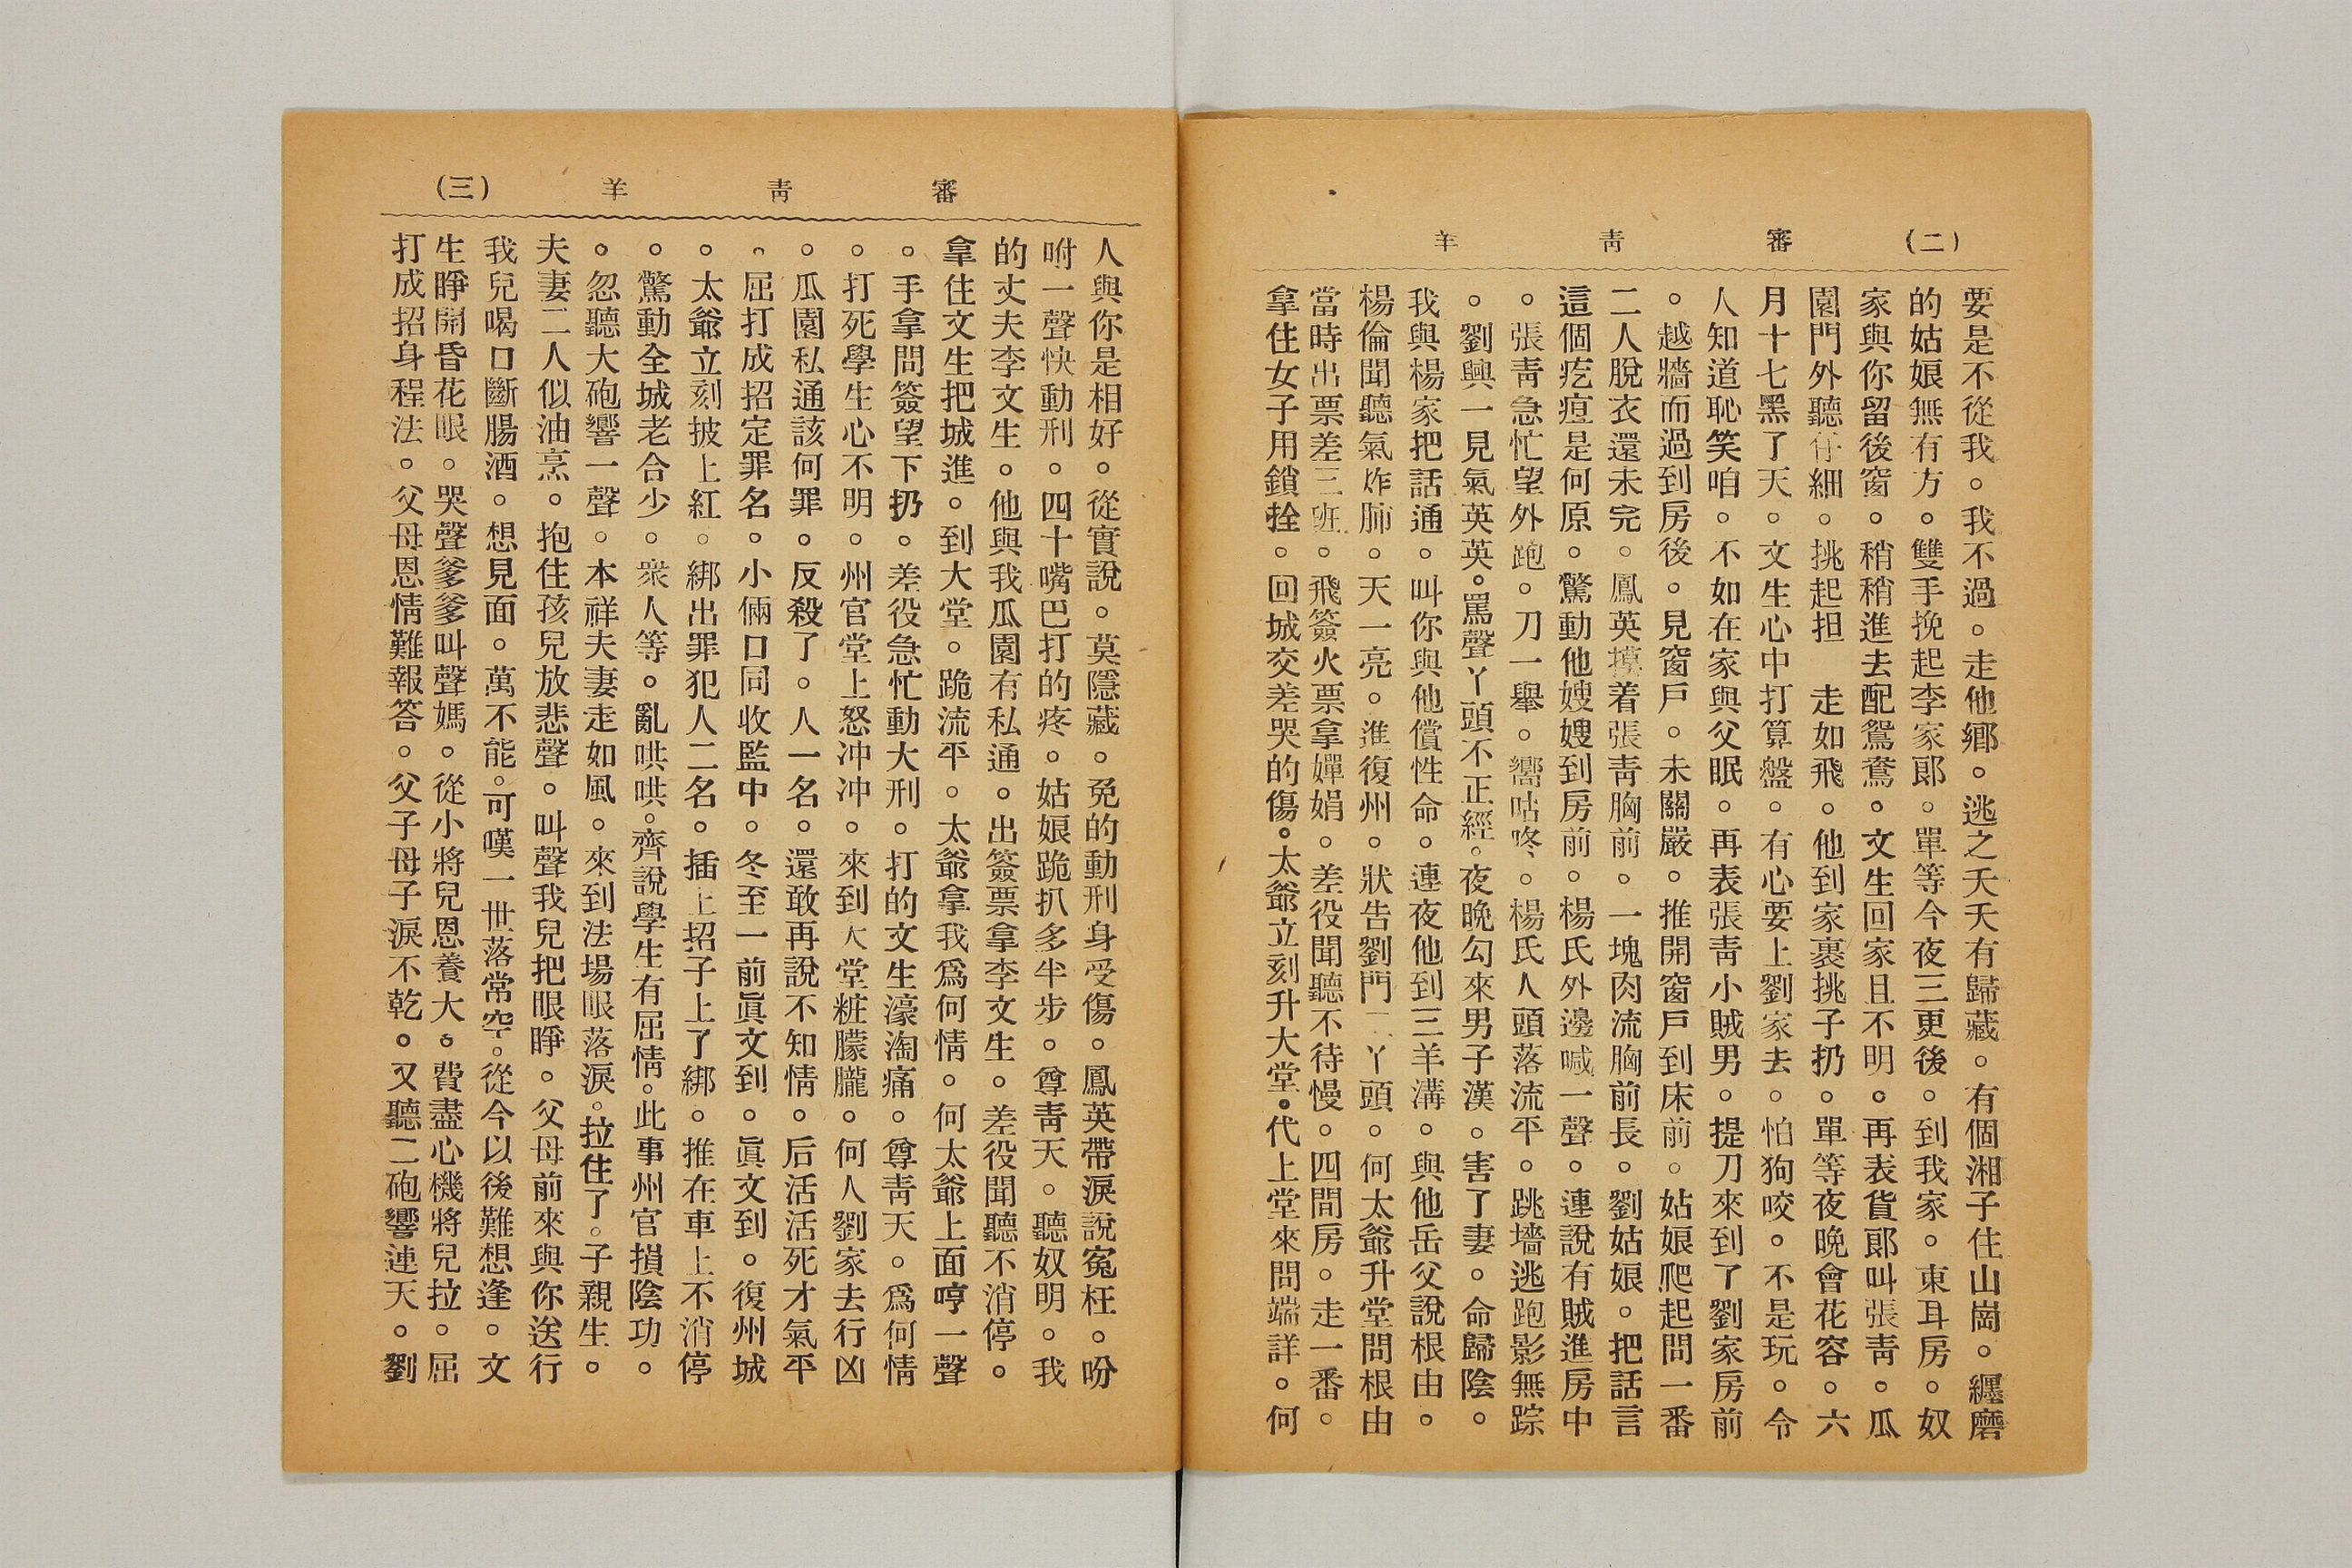 (二)　審　靑　羊
要是不從我。我不過。走他鄉。逃之夭夭有歸藏。有個湘子住山崗。纒磨
的姑娘無有方。雙手挽起李家郞。單等今夜三更後。到我家。東耳房。奴
家與你留後窗。稍稍進去配鴛鴦。文生回家且不明。再表貨郞叫張靑。瓜
園門外聽仔細。挑起担　走如飛。他到家裏挑子扔。單等夜晚會花容。六
月十七黑了天。文生心中打算盤。有心要上劉家去。怕狗咬。不是玩。令
人知道恥笑咱。不如在家與父眠。再表張靑小賊男。提刀來到了劉家房前
。越牆而過到房後。見窗戶。未關嚴。推開窗戶到床前。姑娘爬起問一番
二人脫衣還未完。鳳英摸着張靑胸前。一塊肉流胸前長。劉姑娘。把話言
這個疙疸是何原。驚動他嫂嫂到房前。楊氏外邊喊一聲。連說有賊進房中
。張靑急忙望外跑。刀一舉。嚮咕咚。楊氏人頭落流平。跳墻逃跑影無踪
。劉興一見氣英英。罵聲丫頭不正經。夜晚勾來男子漢。害了妻。命歸陰。
我與楊家把話通。叫你與他償性命。連夜他到三羊溝。與他岳父說根由。
楊倫聞聽氣炸肺。天一亮。進復州。狀告劉門二丫頭。何太爺升堂問根由
當時出票差三班。飛簽火票拿嬋娟。差役聞聽不待慢。四間房。走一番。
拿住女子用鎖拴。回城交差哭的傷。太爺立刻升大堂。代上堂來問端詳。何
審　靑　羊　(三)
人與你是相好。從實說。莫隱藏。免的動刑身受傷。鳳英帶淚說寃枉。吩
咐一聲快動刑。四十嘴巴打的疼。姑娘跪扒多半步。尊靑天。聽奴明。我
的丈夫李文生。他與我瓜園有私通。出簽票拿李文生。差役聞聽不消停。
拿住文生把城進。到大堂。跪流平。太爺拿我爲何情。何太爺上面哼一聲
。手拿問簽望下扔。差役急忙動大刑。打的文生濠淘痛。尊靑天。爲何情
。打死學生心不明。州官堂上怒冲冲。來到大堂粧朦朧。何人劉家去行凶
。瓜園私通該何罪。反殺了。人一名。還敢再說不知情。后活活死才氣平
。屈打成招定罪名。小倆口同收監中。冬至一前眞文到。眞文到。復州城
。太爺立刻披上紅。綁出罪犯人二名。插上招子上了綁。推在車上不消停
。驚動全城老合少。衆人等。亂哄哄。齊說學生有屈情。此事州官損陰功。
。忽聽大砲響一聲。本祥夫妻走如風。來到法場眼落淚。拉住了。子親生。
夫妻二人似油烹。抱住孩兒放悲聲。叫聲我兒把眼睜。父母前來與你送行
我兒喝口斷腸酒。想見面。萬不能。可嘆一世落常空。從今以後難想逢。文
生睜開昏花眼。哭聲爹爹叫聲媽。從小將兒恩養大。費盡心機將兒拉。屈
打成招身程法。父母恩情難報答。父子母子淚不乾。又聽二砲響連天。劉